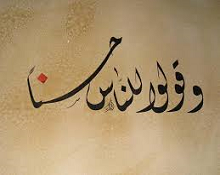 وقولوا للناس حسنا